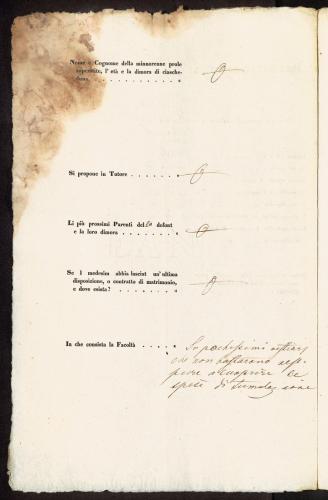 Nome e Cognome della minnorenne prole
superstite, l' età e la dimora di ciasche-
duno . . . . . . . . . . . "
Si propone in Tutore . . . . . . . "
Li più prossimi Parenti del defunt
e la loro dimora . . . . . . . . "
Se i medesim abbia lasciat un'ultima
disposizione, o contratto di matrimonio,
e dove esista? . . . . . . . . . "
In che consista la Facoltà . . . . . "
In pochissimi
che non bastarono
a coprire le
spese di tumulazione